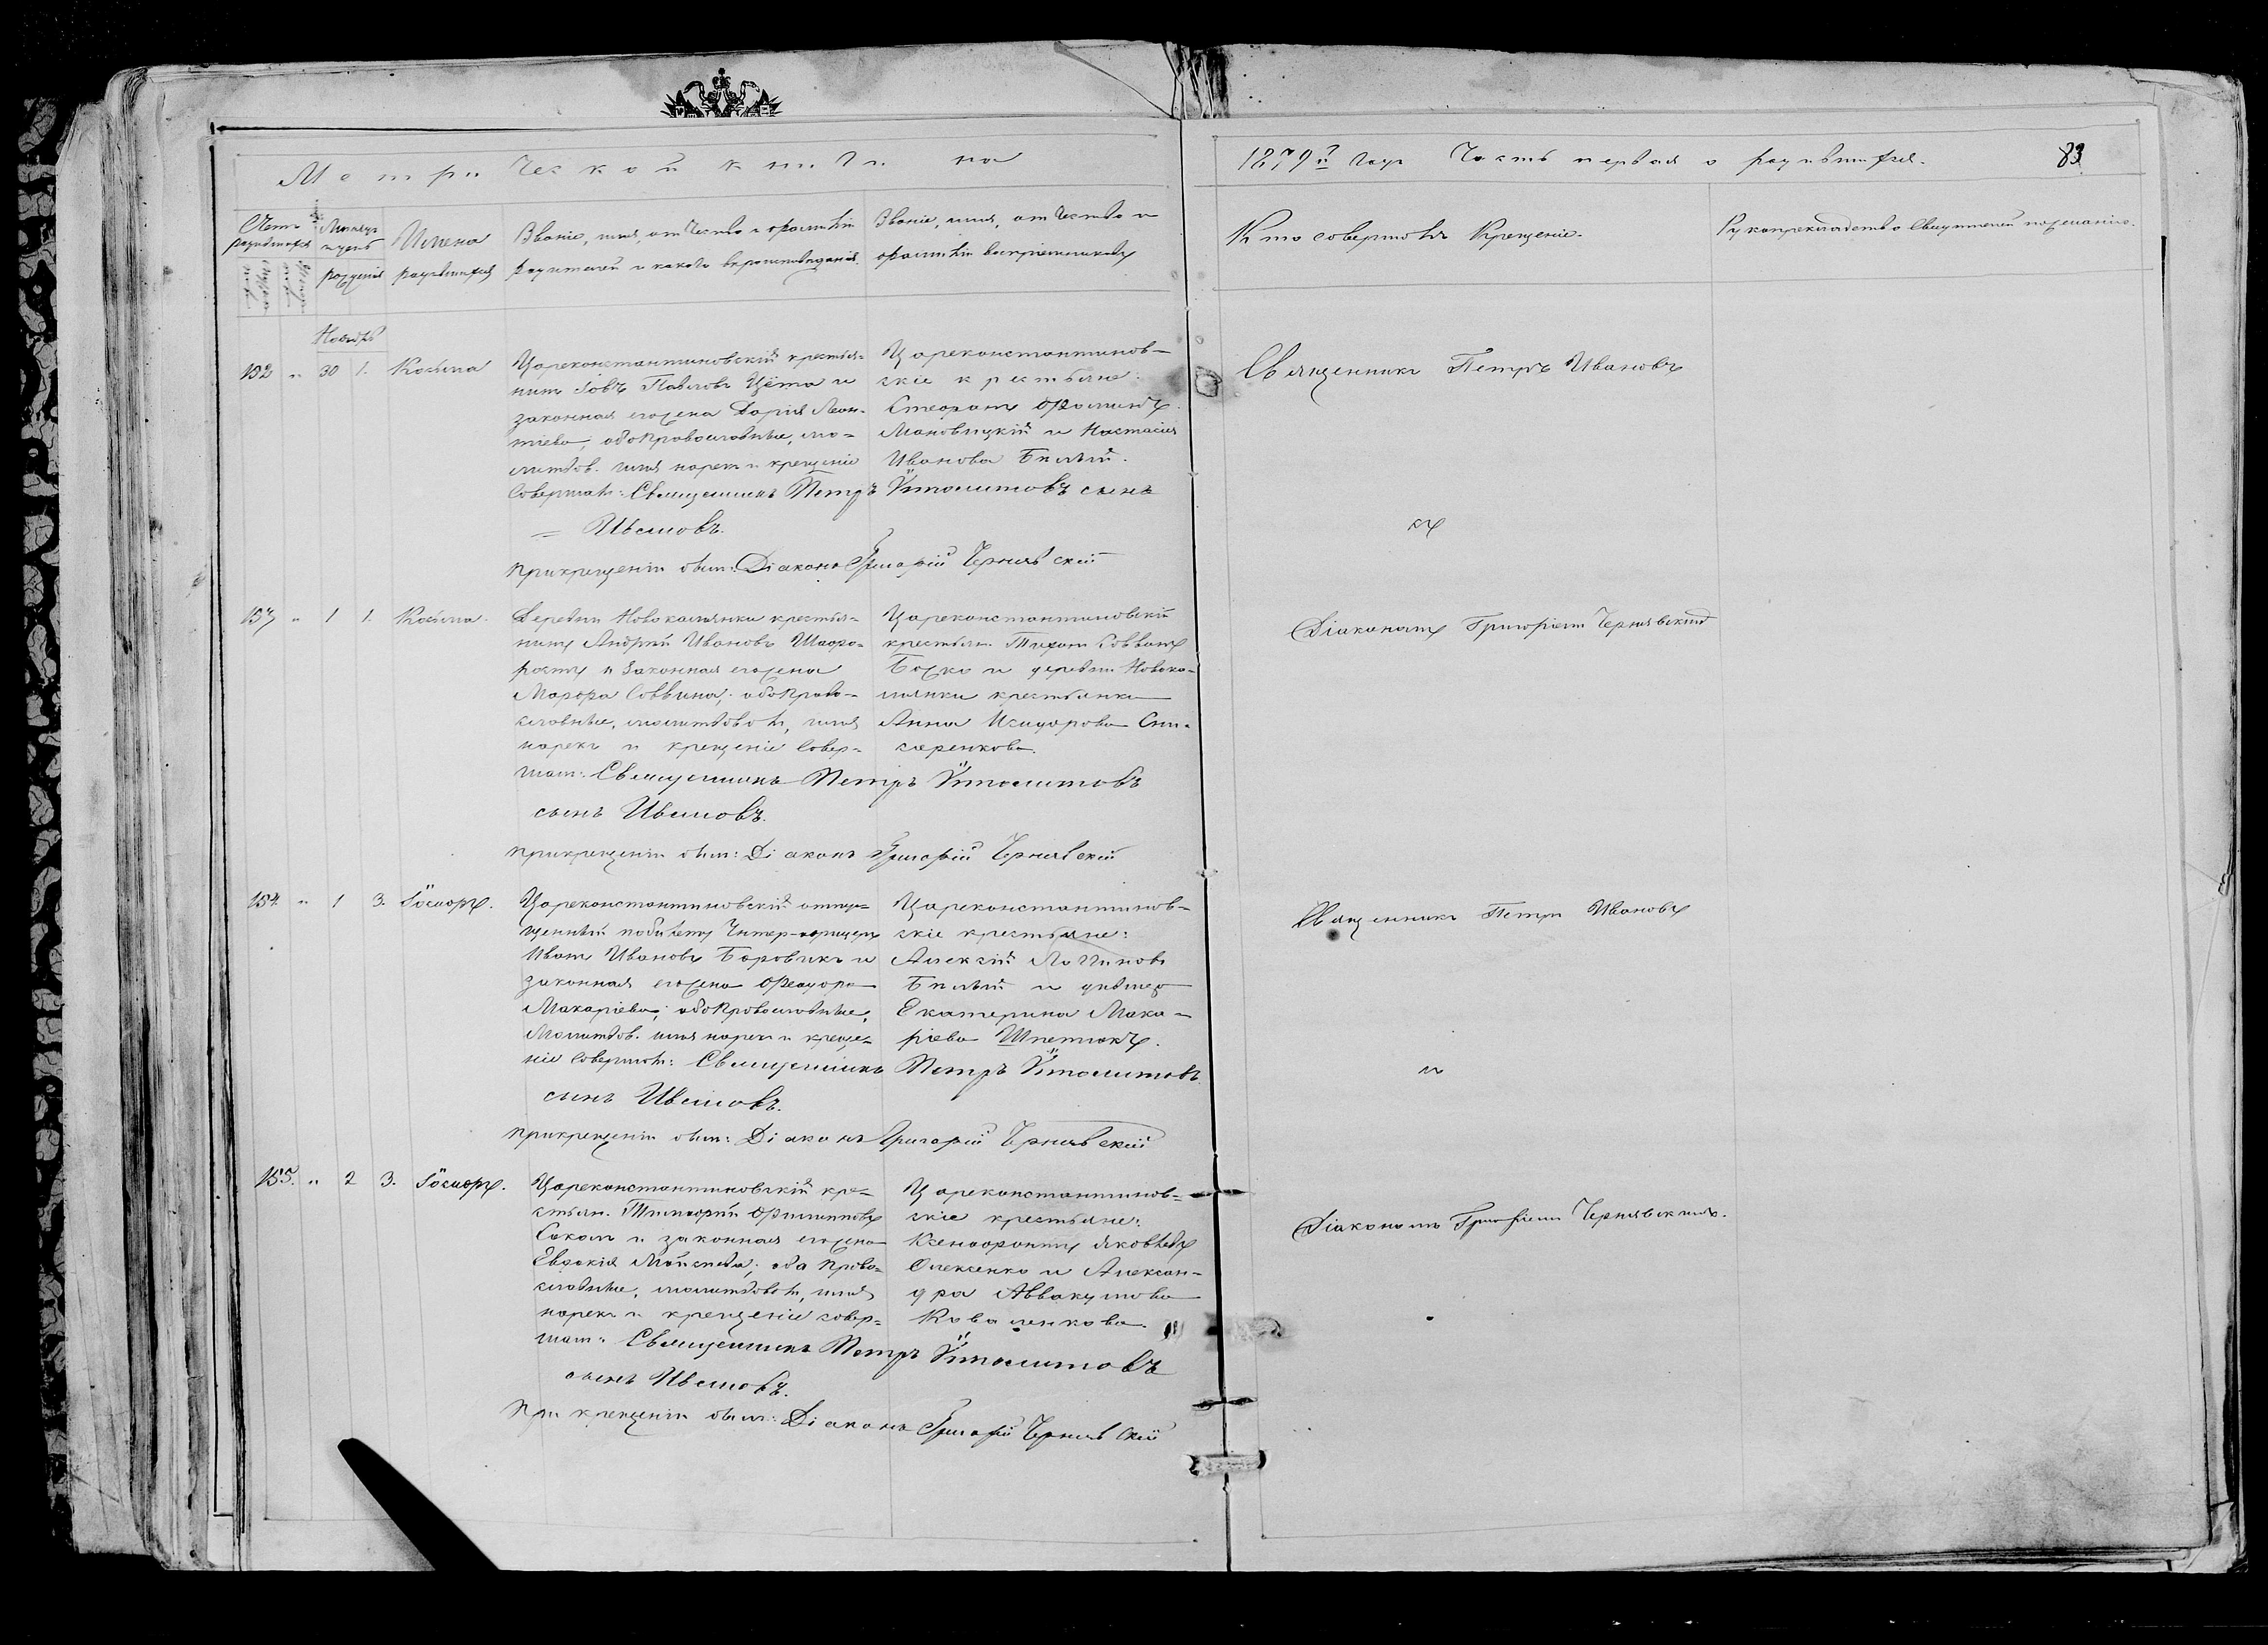 Метрической книги на
1879 года Часть первая о родившихся.
83
Счетъ родившихся
Мѣсяцъ и день рожденія
Имена родившихся
Званіе, имя, отчество и фамилія родителей и какого вѣроисповѣданія.
Званіе, имя, отчество и фамилія воспріемниковъ
Кто совершалъ Крещеніе.
Рукоприкладство свидѣтелей по желанію.
Ноябрь
152 " 30 1. Косьма
Цареконстантиновскій крестья-
нинъ Іовъ Павловъ Цёма и
законная его жена Дарія Леон-
тіева, оба православные, мо-
литвов. имя нарек и крещеніе
совершалъ: Священникъ Петръ Ипполитовъ сынъ
Ивановъ.
При крещеніи былъ: Діаконъ Григорій Чернявскій
Цареконстантинов-
скіе крестьяне:
Стефанъ Фоминъ
Мановицкій и Настасія
Иванова Бѣлый.
Священникъ Петръ Ивановъ
153 " 1 1. Косьма.
Деревни Новокамянки крестья-
нинъ Андрей Ивановъ
и законная его жена
Марфа Саввина; оба право-
славные, молитвовалъ, имя
нарекъ и крещеніе совер-
шалъ: Священникъ Петръ Ипполитовъ
сынъ Ивановъ.
При крещеніи былъ: Діаконъ Григорій Чернявскій
Цареконстантиновскій
крестьян. Тихонъ Саввинъ
Божко и деревни Новока-
мянки крестьянка
Анна Исидорова Сли-
саренкова.
Діакономъ Григоріемъ Чернявскимъ
154. " 1 3. Іосифъ.
Цареконстантиновскій отпу-
щенный по билету Унтер-офицеръ
Иванъ Ивановъ Боровикъ и
законная его жена Феодора
Макаріева; оба православные,
Молитвов. имя нарек и креще-
ніе совершалъ: Священникъ Петръ Ипполитовъ
сынъ Ивановъ.
При крещеніи былъ: Діаконъ Григорій Чернявскій
Цареконстантинов-
скіе крестьяне:
Алексій
Бѣлый и дѣвица
Екатерина Мака-
ріева Шпетикъ.
Священникъ Петръ Ивановъ
155. " 2 3. Іосифъ.
Цареконстантиновскій кре-
стьян. Тимофей Филипповъ
Сокол и законная его жена
Евдокія Мойсеева; оба право-
славные, молитвовалъ, имя
нарек и крещеніе совер-
шалъ: Священникъ Петръ Ипполитовъ
сынъ Ивановъ.
При крещеніи былъ: Діаконъ Григорій Чернявскій
Цареконстантинов-
скіе крестьяне:
Ксенофонтъ Яковлевъ
Олексенко и Алексан-
дра Аввакумова
Коваленкова.
Діакономъ Григоріемъ Чернявскимъ.